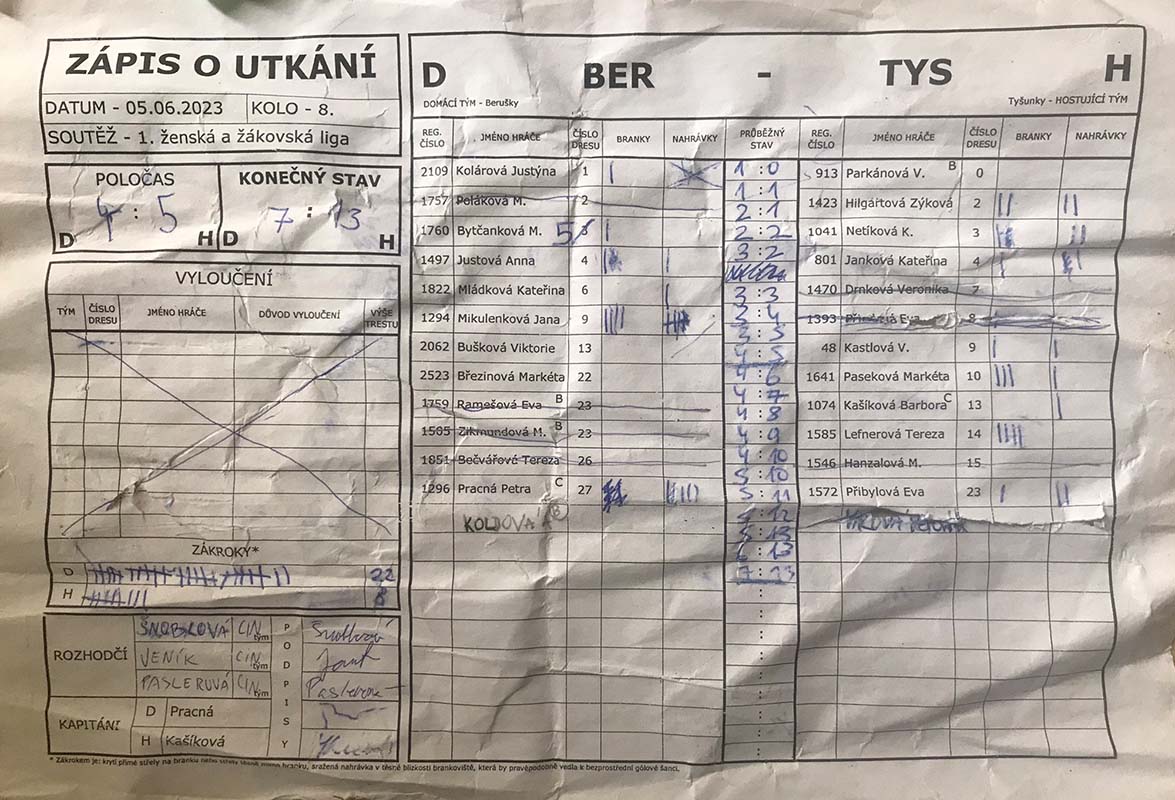 ZÁPIS O UTKÁNÍ
DATUM - 05.06.2023 KOLO - 8.
SOUTĚŽ - 1. ženská a žákovská liga
POLOČAS KONEČNÝ STAV
4 : 5 7 : 13
D H D H
VYLOUČENÍ
TÝM ČÍSLO DRESU JMÉNO HRÁČE DŮVOD VYLOUČENÍ VÝŠE TRESTU
ZÁKROKY*
D 22
H 8
ROZHODČÍ
ŠNOBLOVÁ CIN tým
VENÍK CIN tým
PASLEROVÁ CIN tým
PODPISY
KAPITÁNI
D Pracná
H Kašíková
D BER - TYS H
DOMÁCÍ TÝM - Berušky Tyšunky - HOSTUJÍCÍ TÝM
REG. ČÍSLO JMÉNO HRÁČE ČÍSLO DRESU BRANKY NAHRÁVKY PRŮBĚŽNÝ STAV REG. ČÍSLO JMÉNO HRÁČE ČÍSLO DRESU BRANKY NAHRÁVKY
2109 Kolárová Justýna 1 1:0 913 Parkánová V. B 0
1757 Poláková M. 2 1:1 1423 Hilgartová Zýková 2
2:1
1760 Bytčanková M. 5 2:2 1041 Netíková K. 3
1497 Justová Anna 4 3:2 801 Janková Kateřina 4
1822 Mládková Kateřina 6 3:3 1470 Drnková Veronika 7
1294 Mikulenková Jana 9 3:4 1393 Eva 8
3:5
2062 Bušková Viktorie 13 4:5 48 Kastlová V. 9
2523 Březinová Markéta 22 4:6 1641 Paseková Markéta 10
4:7
1759 Ramešová Eva B 23 4:8 1074 Kašíková Barbora C 13
1585 Zikmundová M. B 23 4:9 1585 Lefnerová Tereza 14
1851 Bečvářové Tereza 26 4:10 1546 Hanzalová M. 15
5:10
1296 Pracná Petra C 27 5:11 1572 Přibylová Eva 23
KOLDOVÁ B :12
5:13
6:13
7:13
* Zákrokem je: krytí přímé střely na branku nebo střely těsně mimo branku, sražená nahrávka v těsné blízkosti brankoviště, která by pravěpodobně vedla k bezprostřední gólové šanci.